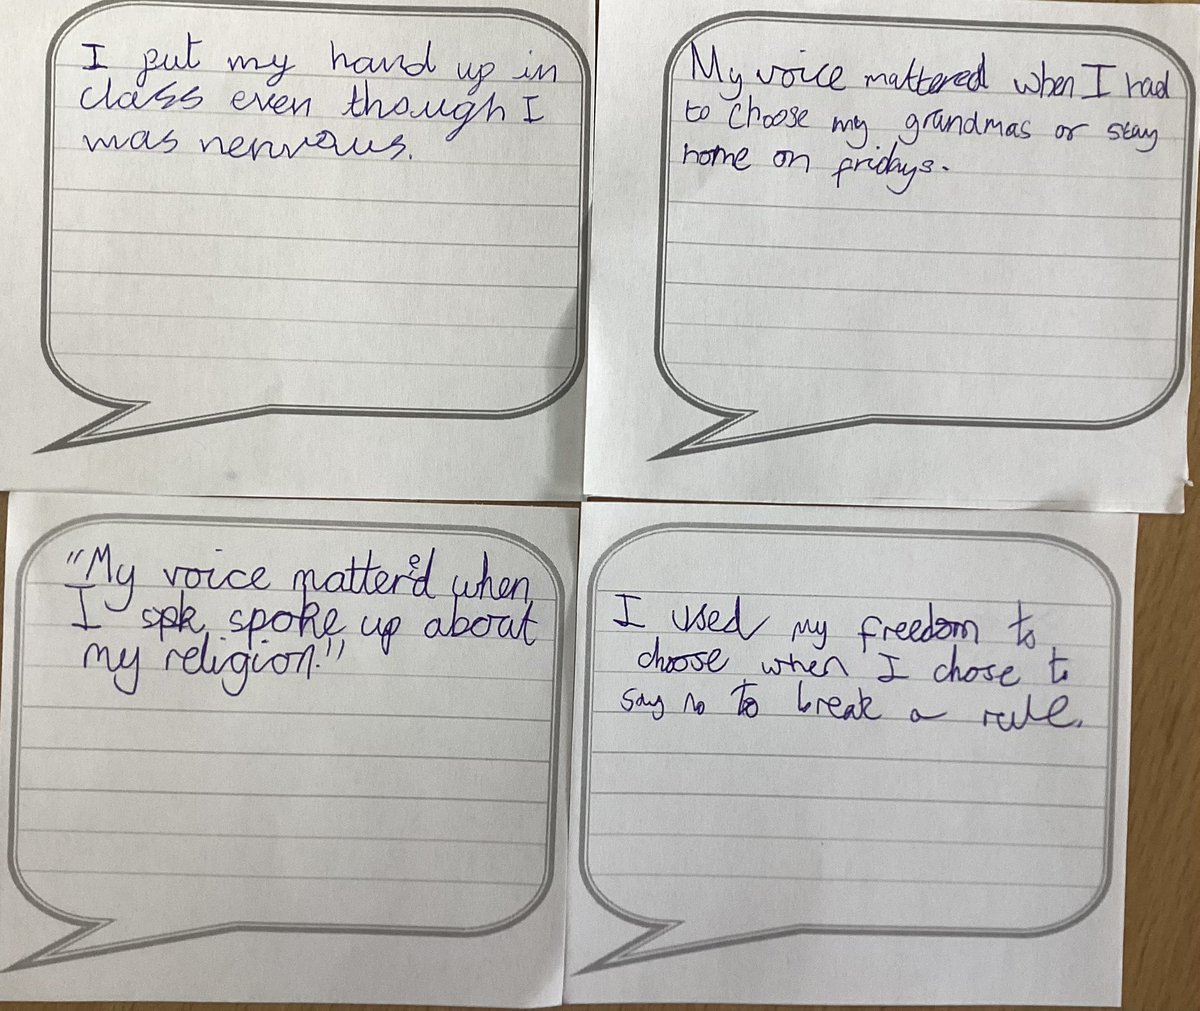 I put my hand up in
class even though I
was nervous.
My voice mattered when I had
to choose my grandmas or stay
home on fridays.
"My voice mattered when
I spk spoke up about
my religion."
I used my freedom to
choose when I chose to
say no to break a rule.